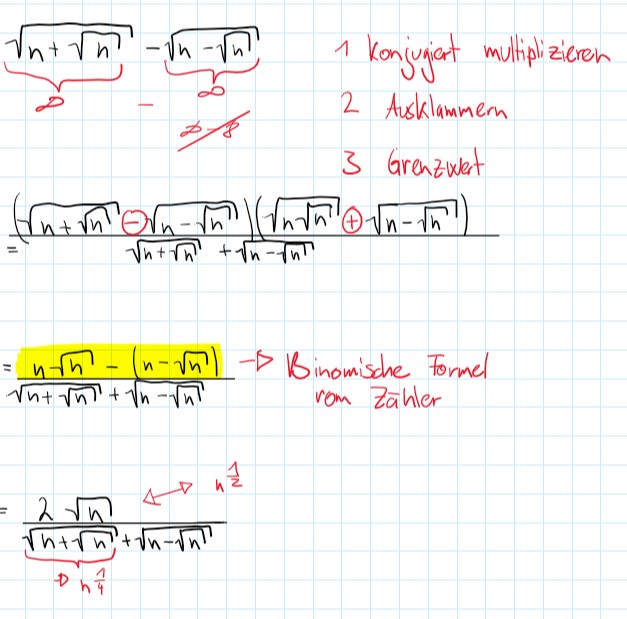 √(n + √n) − √(n − √n)
∞ − ∞
∞ − ∞
1 Konjugiert multiplizieren
2 Ausklammern
3 Grenzwert
= (√(n + √n) − √(n − √n)) (√(n √n) + √(n − √n)) / (√(n + √n) + √(n − √n))
= n − √n − (n − √n) / (√(n + √n) + √(n − √n)) → Binomische Formel
vom Zähler
= 2 √n / (√(n + √n) + √(n − √n)) ↔ n^(1/2)
→ n^(1/4)